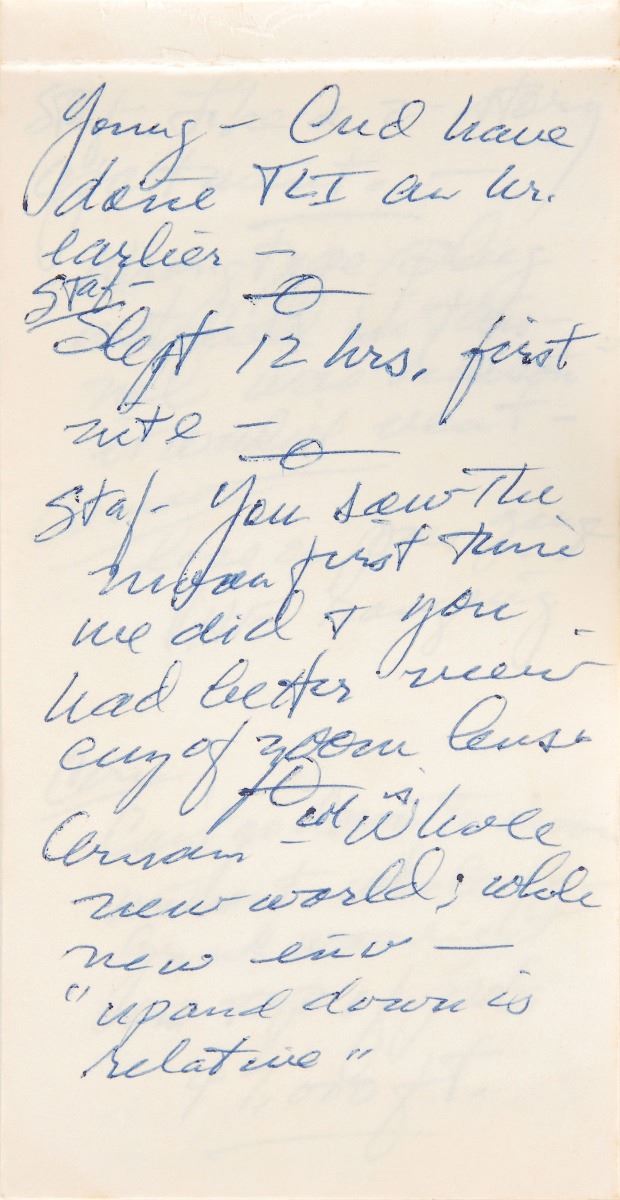 Young – Cud have
done TLI an hr.
earlier –
Staf-
Slept 12 hrs. first
nite –
Staf- You saw the
moon first time
we did + you
had better view
cuz of zoom lens.
Cernan – it is whole
new world; whole
new env —
"up and down is
relative"